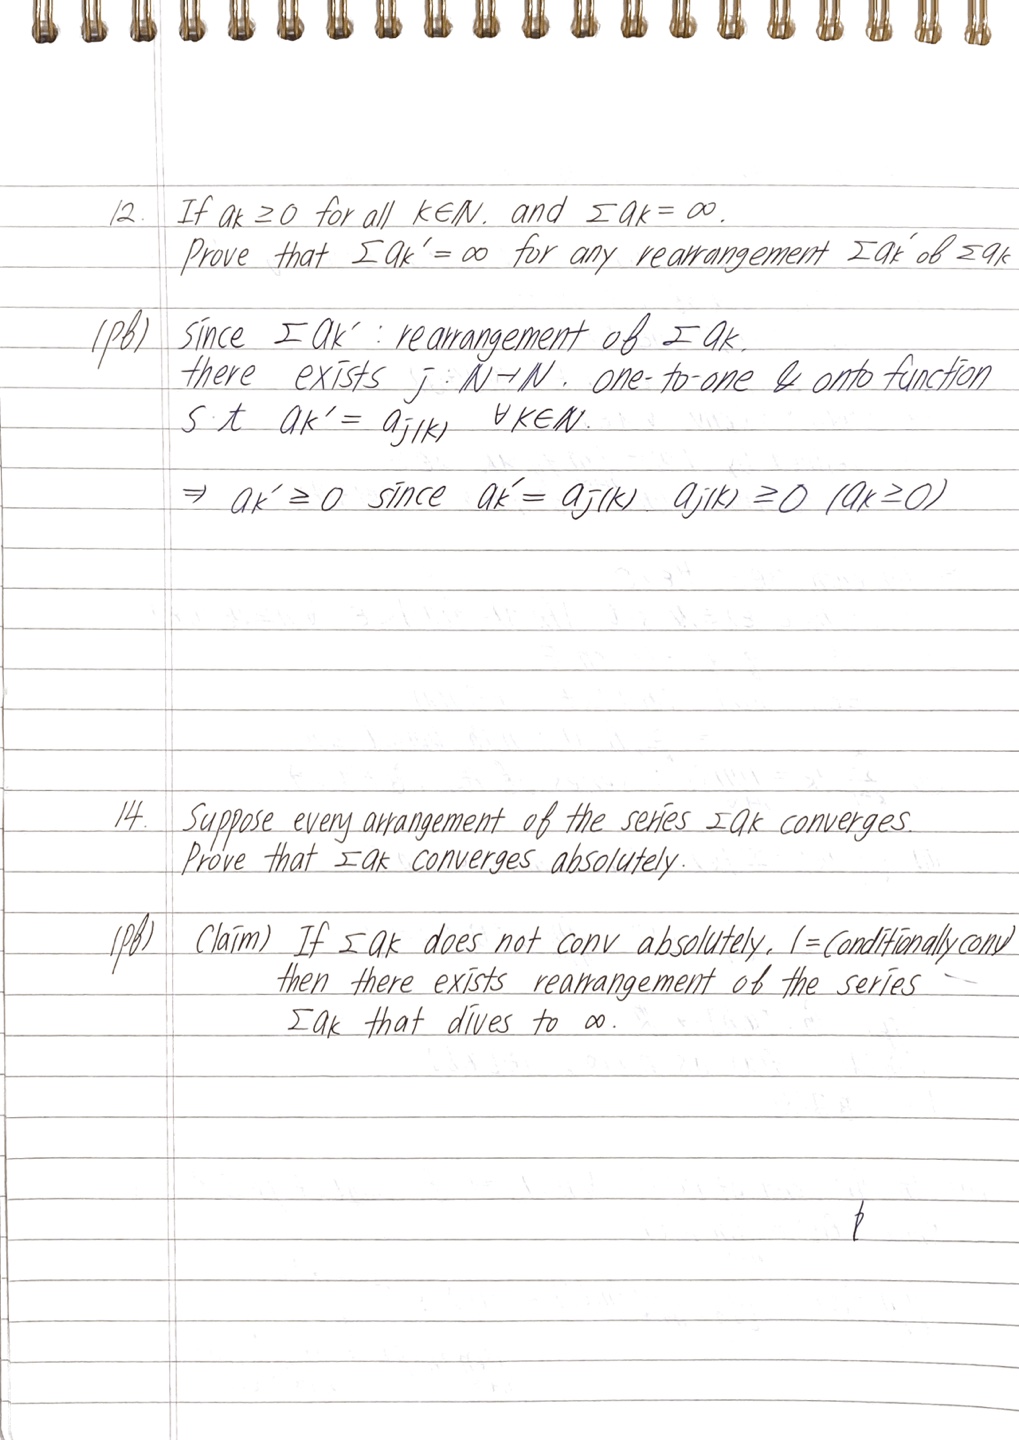 12. If ak ≥ 0 for all k∈N. and Σak = ∞.
Prove that Σak' = ∞ for any rearrangement Σak' of Σak
(pf) since Σak' : rearrangement of Σak.
there exists j : N→N. one-to-one & onto function
s.t ak' = aj(k) ∀k∈N.
⇒ ak' ≥ 0 since ak' = aj(k) aj(k) ≥ 0 (ak ≥ 0)
14. Suppose every arrangement of the series Σak converges.
Prove that Σak converges absolutely.
(pf) Claim) If Σak does not conv absolutely. (= Conditionally conv)
then there exists rearrangement of the series
Σak that dives to ∞.